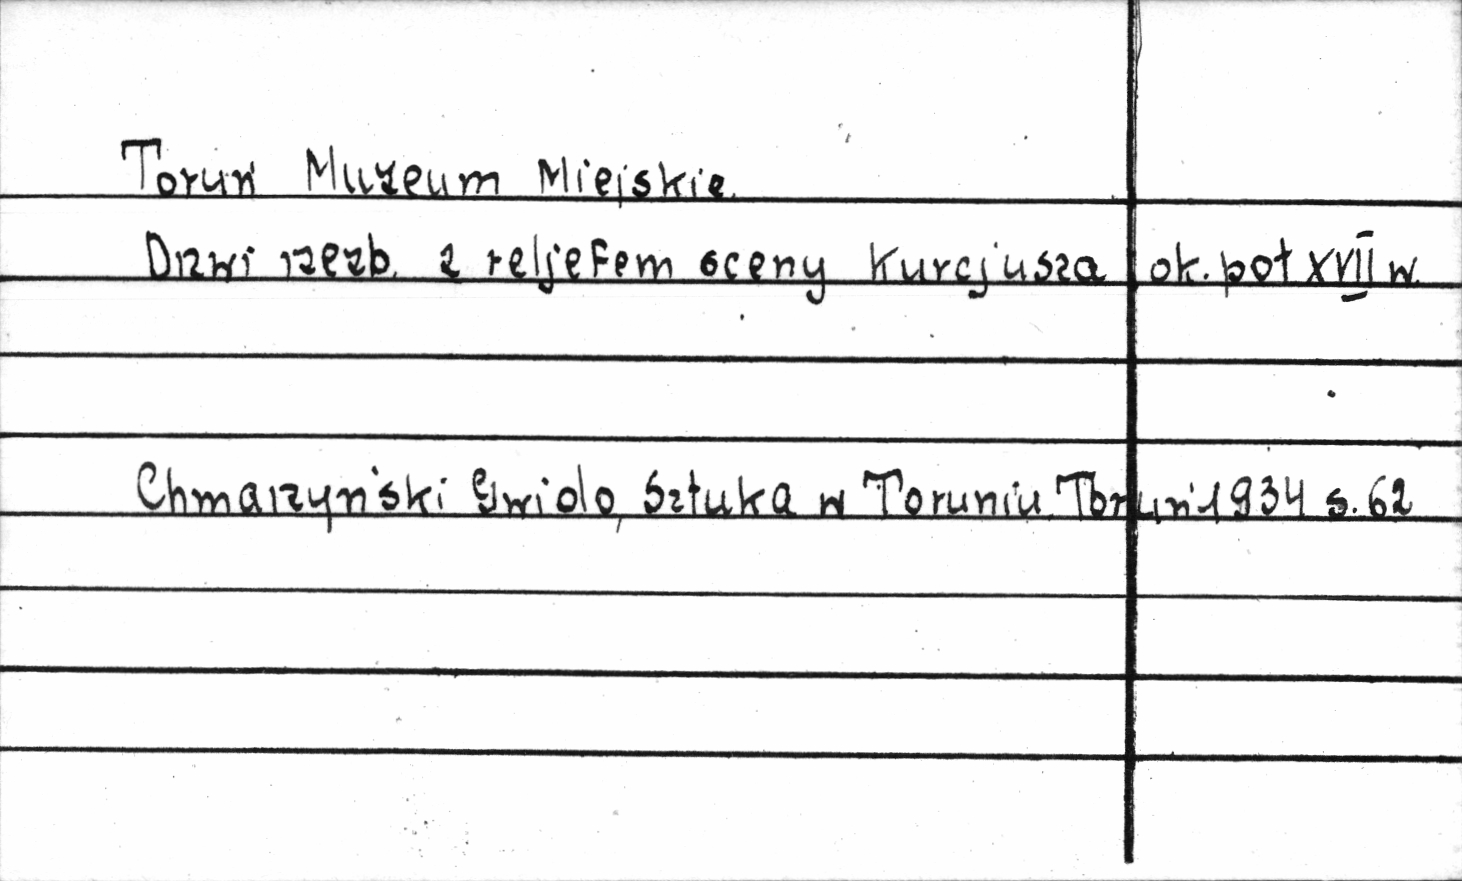 Toruń Muzeum Miejskie.
Drzwi rzezb. z reljefem sceny Kurcjusza ok. poł XVII w.
Chmarzyński Gwido, Sztuka w Toruniu. Toruń 1934 s. 62